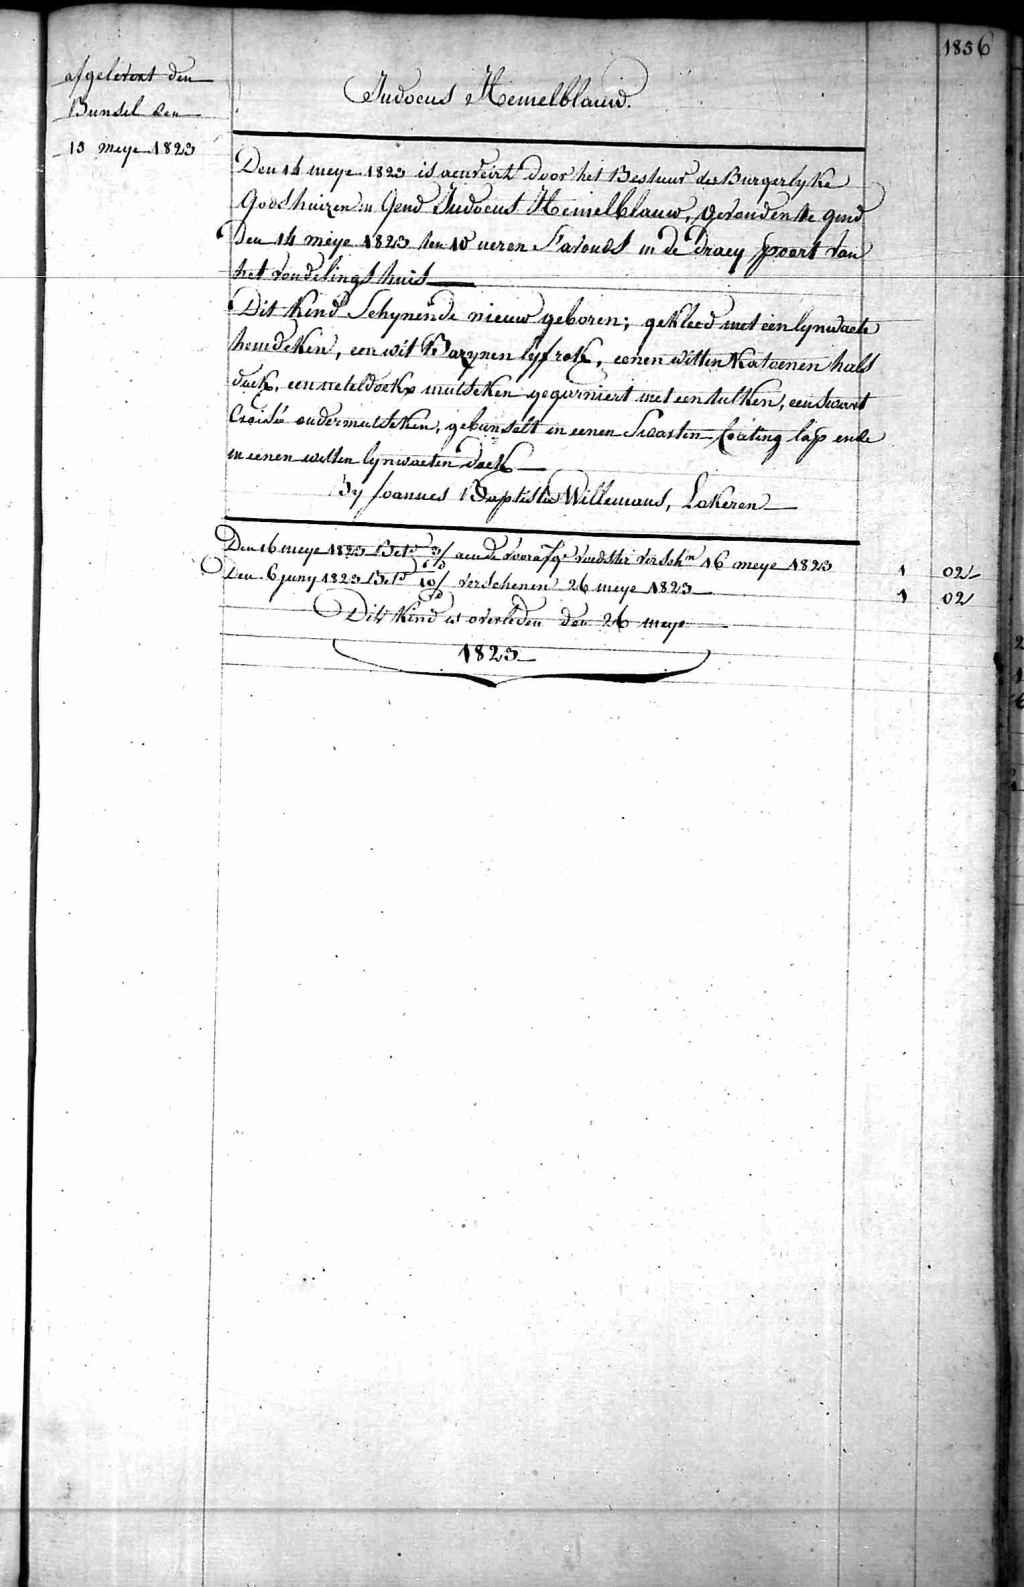 1836
afgelevert den
Bunsel den
15 meye 1823
Judocus Hemelblauw.
Den 14 meye 1823 is aenveirt door het Bestuur der Burgerlyke
Godshuizen in Gend Judocus Hemelblauw, gevonden te gend
den 14 meye 1823 ten 10 ueren s'avonds in de draey poort van
het vondelings huis
Dit kind Schynende nieuw geboren; gekleed met een lynwaete
hemdeken, een wit Bazynen lyfrok, eenen witten Katoenen hals
doek, een neteldoekx mutseken gegarniert met een tulken, een swart
Croisée ondermutseken, gebunselt in eenen Swarten Coating lap ende
in eenen witten lynwaeten doek
By Joannes Baptiste Willemans, Lokeren
Den 16 meye 1823 Bet.d 3/ aen de voorasz.e voedster versch.n 16 meye 1823 1 02
Den 6 juny 1823 Bet.d 10/ verschenen 26 meye 1823 1 02
Dit kind is overleden den 26 meye
1823